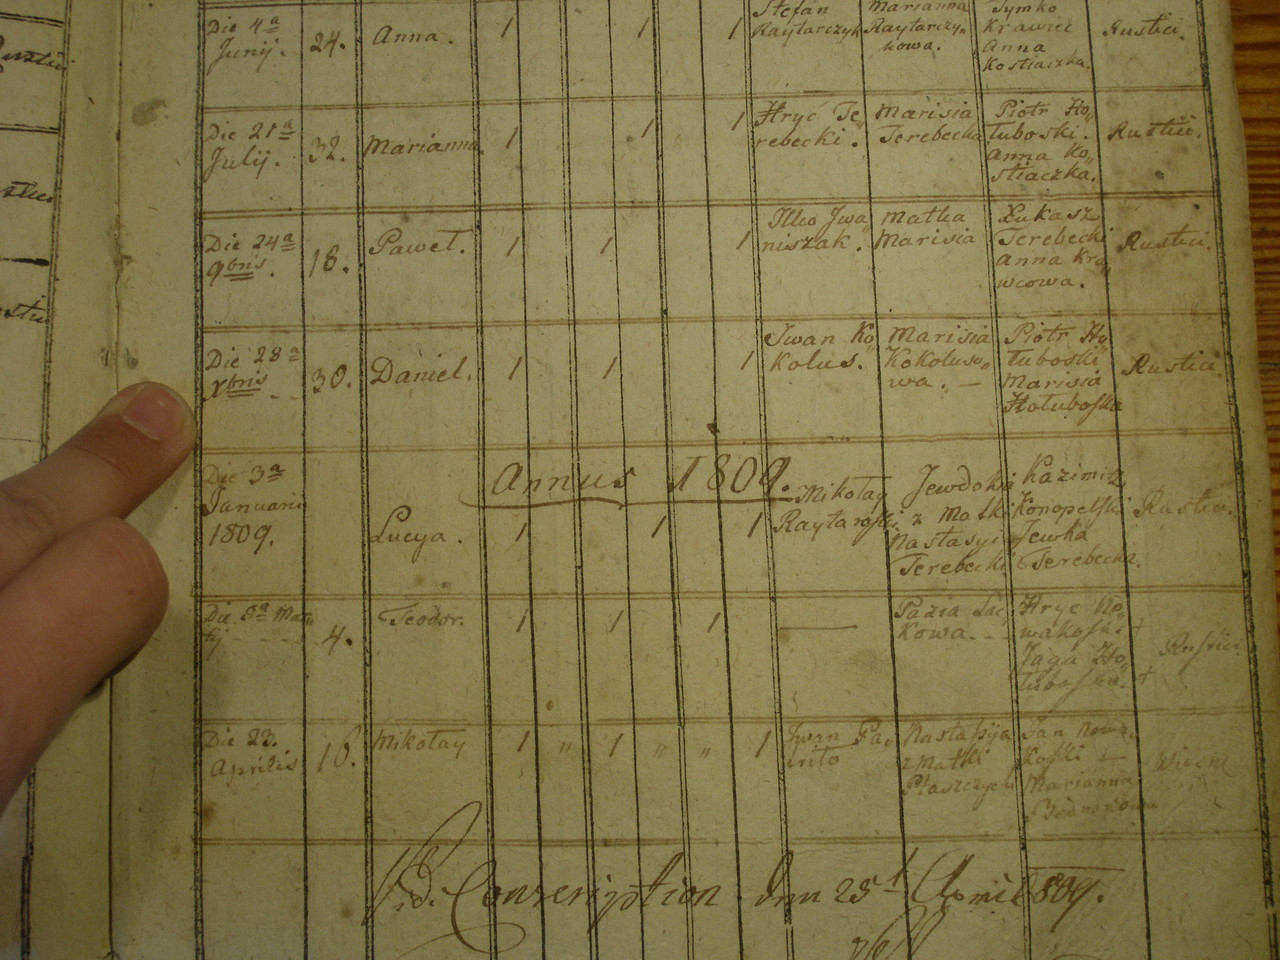 Die 4ª
Junij.
24.
Anna.
1
1
1
Stefan
Raytarczyk
Marianna
Raytarczy„
kowa.
Tymko
Krawiec
Anna
Kostiaczka.
Rustici.
Die 21ª
Julij.
32.
Marianna.
1
1
1
Hryć Te„
rebecki.
Marisia
Terebecka
Piotr Ho„
łuboski.
Anna Ko„
stiaczka.
Rustici.
Die 24ª
9bris.
18.
Paweł.
1
1
1
Ilko Jwa„
niszak.
Matka
Marisia
Łukasz
Terebecki
Anna Kra„
wcowa.
Rustici.
Die 28ª
Xbris
30.
Daniel.
1
1
1
Jwan Ko„
kolus.
Marisia
Kokoluso„
wa. —
Piotr Ho„
łuboski
Marisia
Hołuboska
Rustici.
Annus 1809.
Die 3ª
Januarii
1809.
Lucya.
1
1
1
Mikołay
Raytaroski
Jewdokij
z Matki
Nastasyi
Terebecki
Kazimirz
Konopelski
Jewka
Terebecka.
Rustici.
Die 8ª
4.
Teodor.
1
1
1
—
Pazia
kowa.
Hryc No„
wakoski †
Jaga Ho„
łuboska. †
Rustici
Die 23.
Aprilis
16.
Mikołay
1 „ 1 „ „ 1
Jwan
Nastasyja
z Matki
Płaszczych
Jan Nowa„
koski —
Marianna
Vid. Conscription den 25t April 809.